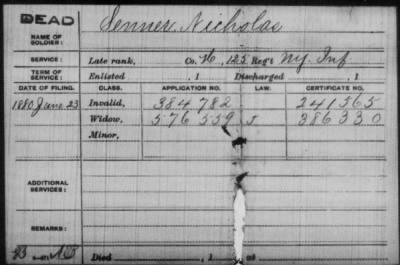 DEAD
Senner Nicholas
NAME OF SOLDIER:
SERVICE: Late rank, Co. H, 125 Reg't Ny. Inf
TERM OF SERVICE: Enlisted , 1 Discharged , 1
DATE OF FILING. CLASS. APPLICATION NO. LAW. CERTIFICATE NO.
1880 June 23 Invalid, 384782 241565
Widow, 576559 386330
Minor,
ADDITIONAL SERVICES:
REMARKS:
Died , 1 at